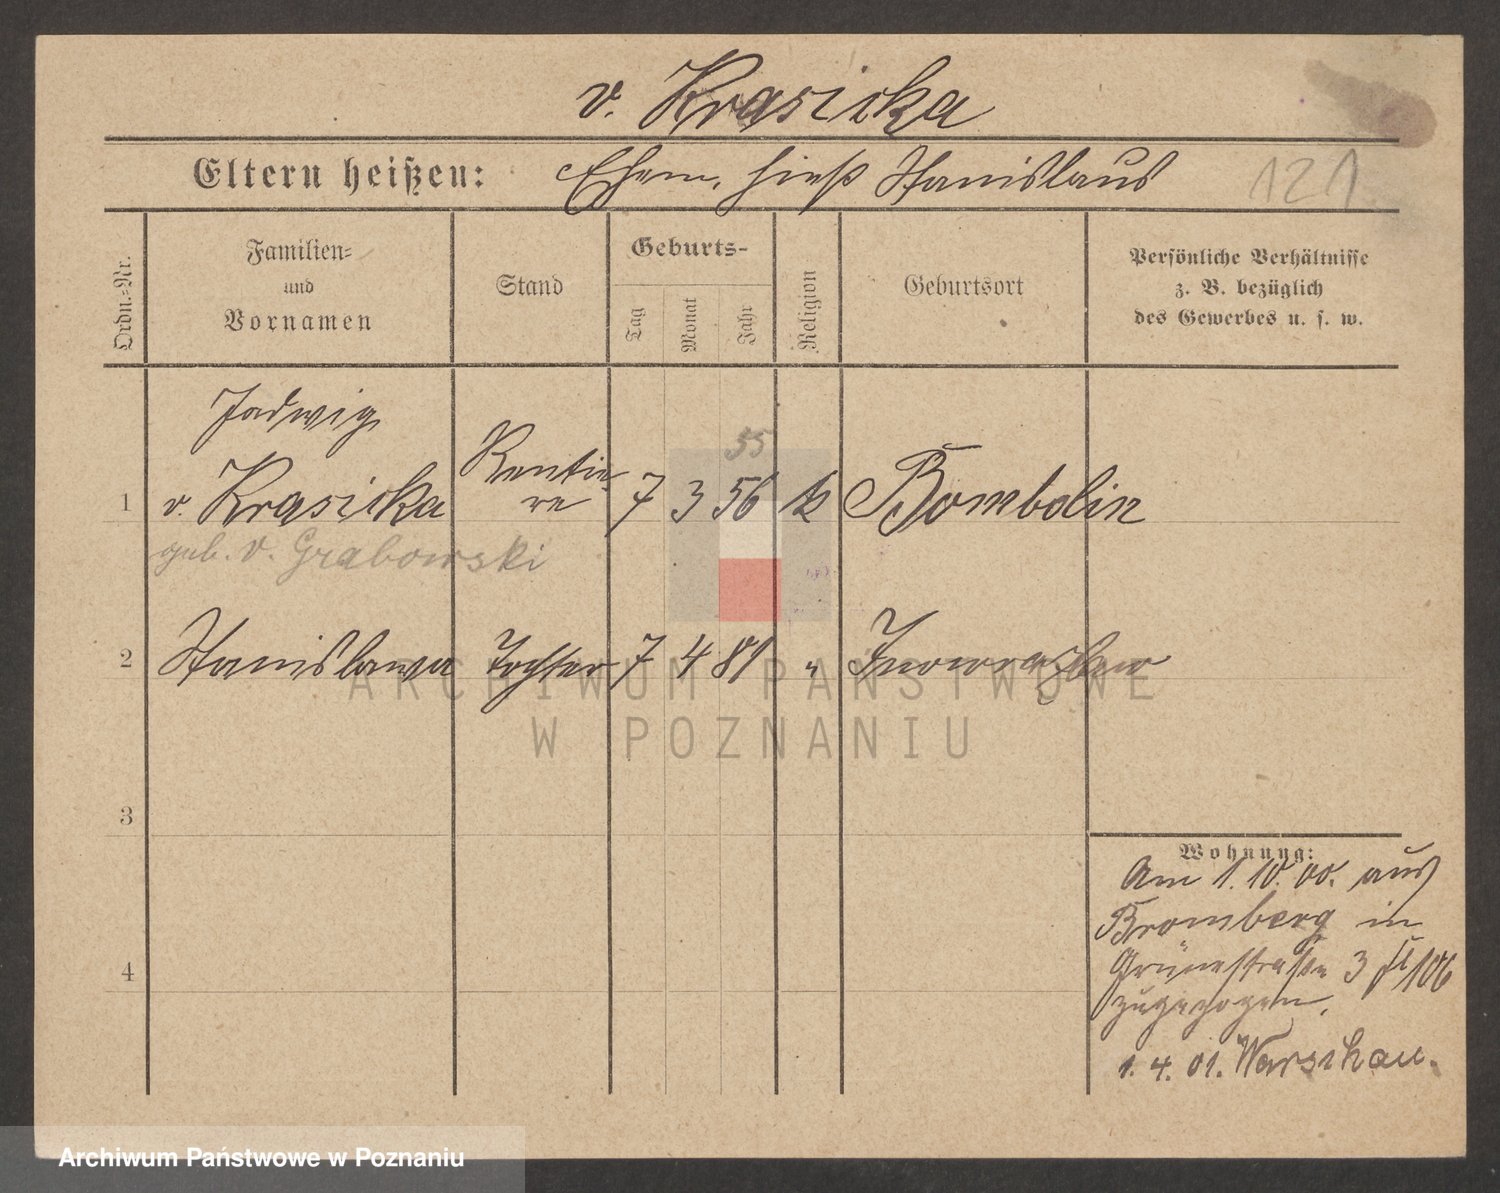 v. Krasicka
Eltern heißen: Ehem. hieß Stanislaus 121
Ordn.=Nr.
Familien=
und
Vornamen
Stand
Geburts-
Tag
Monat
Jahr
Religion
Geburtsort
Persönliche Verhältnisse
z. B. bezüglich
des Gewerbes u. s. w.
Jadwig
55
1 v. Krasicka Rentie-
re 7 3 56 k Bombolin
geb. v. Grabowski
2 Stanislawa Tochter 7 4 81 " Inowrazlaw
ARCHIWUM PAŃSTWOWE
W POZNANIU
3
4
Wohnung:
Am 1.10.00. aus
Bromberg in
Grünestraße 3 106
zugezogen.
1. 4. 01. Warschau.
Archiwum Państwowe w Poznaniu